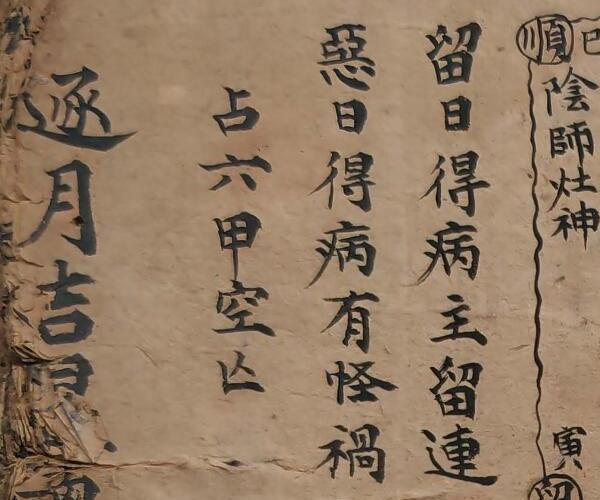 巳
順陰師灶神
寅
留日得病主留連
惡日得病有怪禍
占六甲空亡
逐月吉